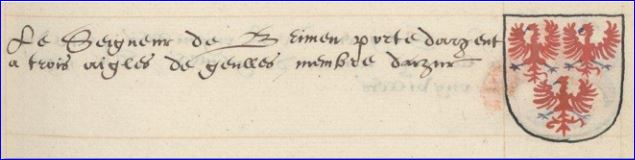 Le Seigneur de Brimen porte dargent
a trois aigles de geulles membre dazur